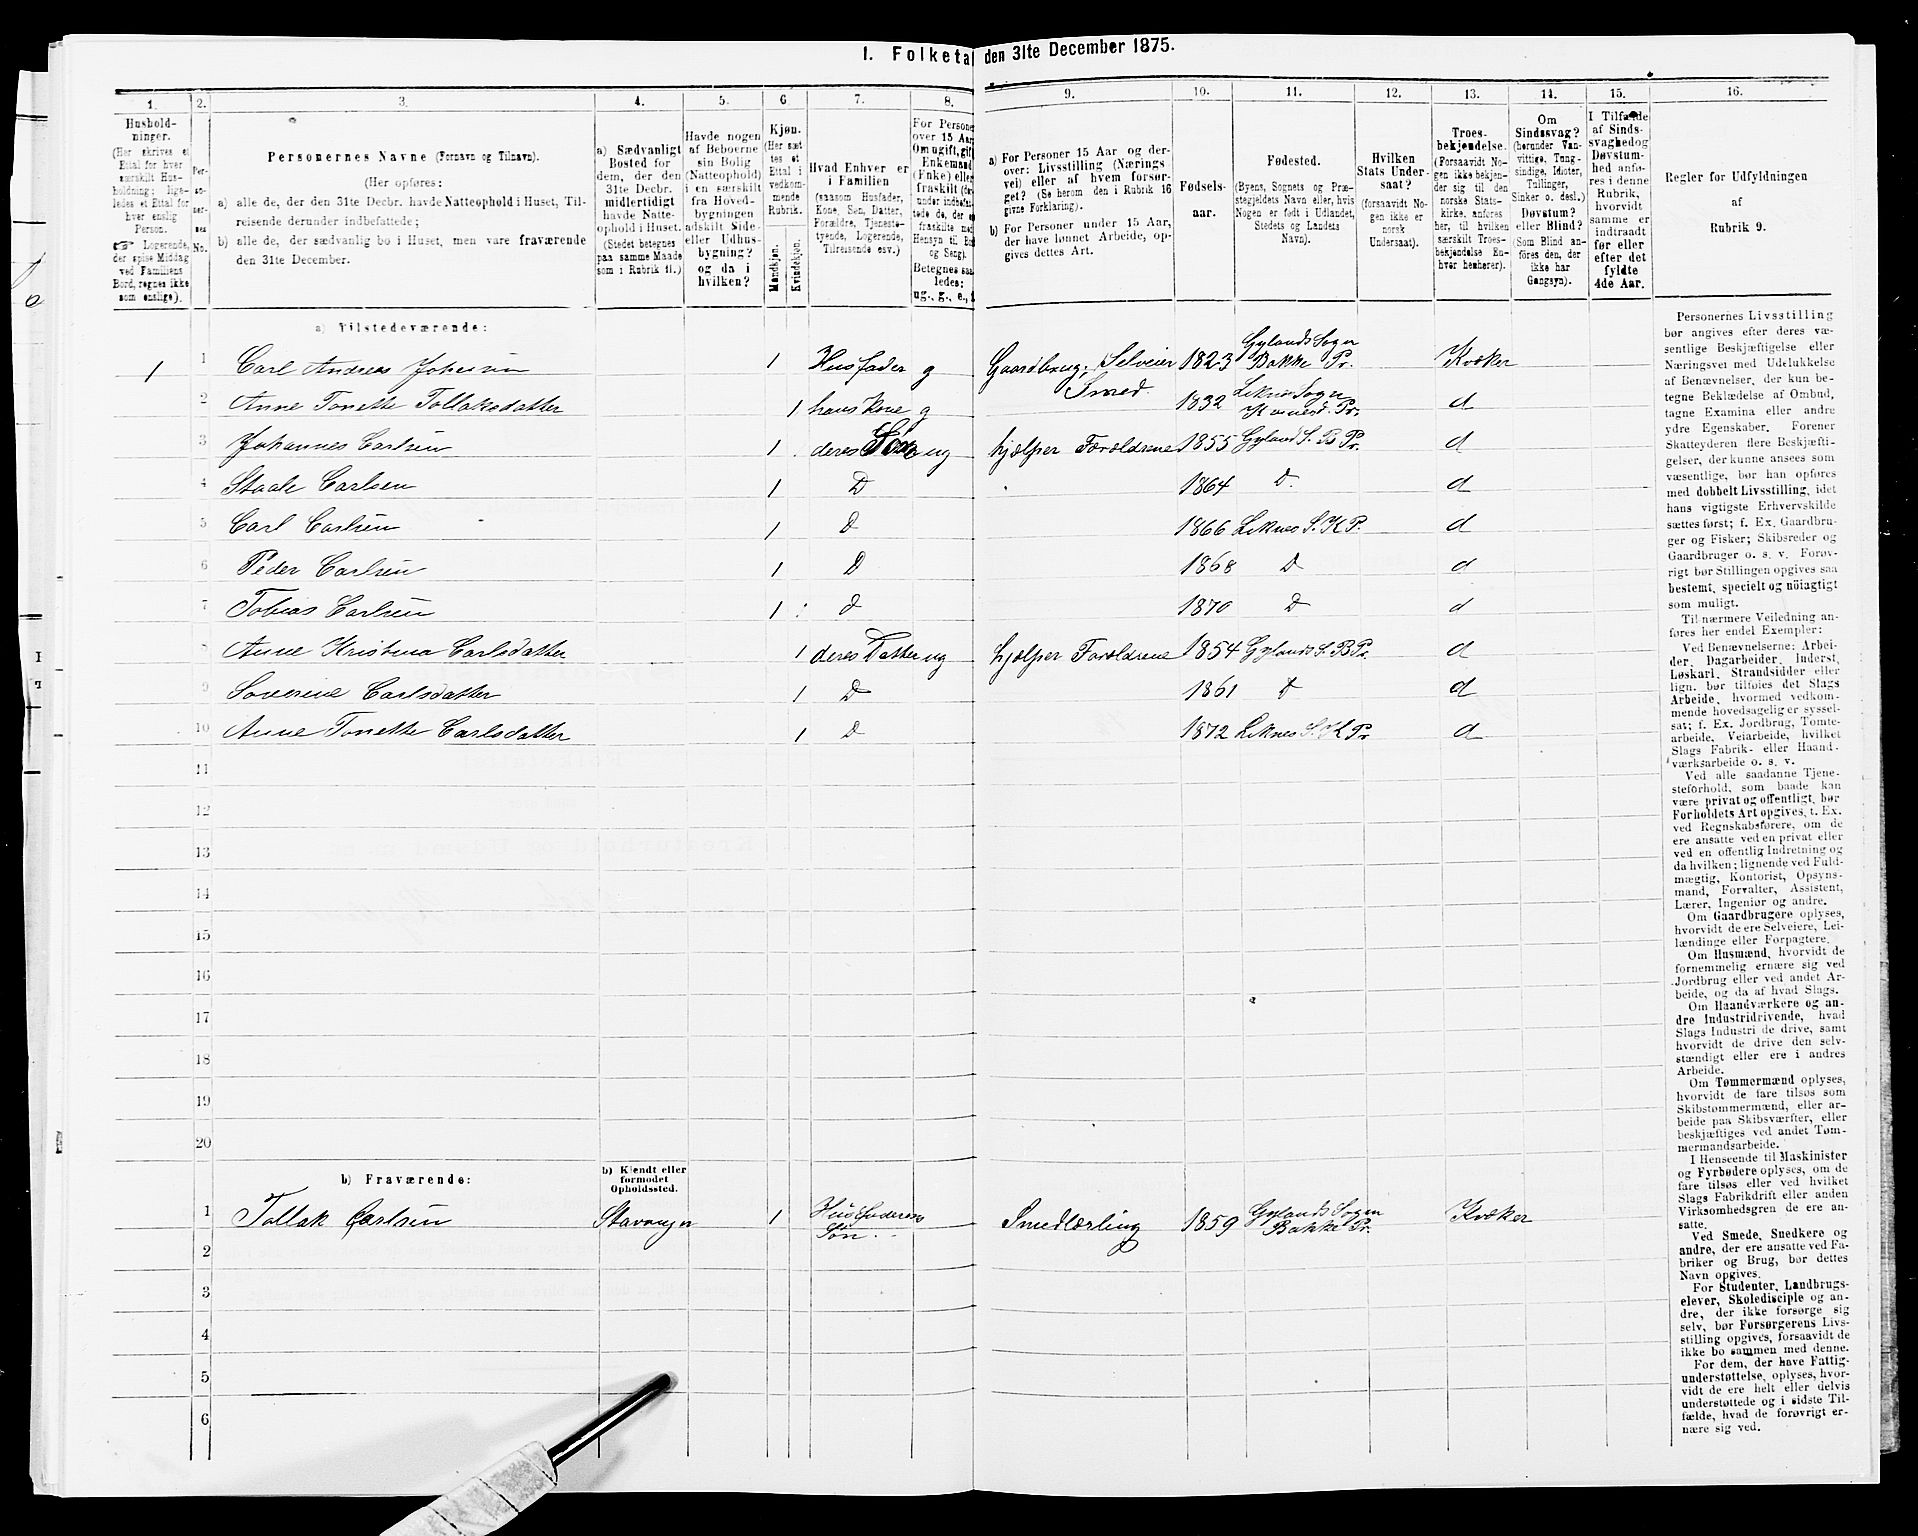 1. Folketa den 31te December 1875.
1. 2. 3. 4. 5. 6 7. 8. 9. 10. 11. 12. 13. 14. 15. 16.
Hushold-
ninger.
(Her skrives et
Ettal for hver
særskilt Hus-
holdning; lige-
ledes et Ettal for
hver enslig
Person.
☞ Logerende,
der spise Middag
ved Familiens
Bord, regnes ikke
som enslige).
Per-
so-
ner-
nes
No.
Personernes Navne (Fornavn og Tilnavn).
(Her opføres:
a) alle de, der den 31te Decbr. havde Natteophold i Huset, Til-
reisende derunder indbefattede;
b) alle de, der sædvanlig bo i Huset, men vare fraværende
den 31te December.
a) Sædvanligt
Bosted for
dem, der den
31te Decbr.
midlertidigt
havde Natte-
ophold i Huset.
(Stedet betegnes
paa samme Maade
som i Rubrik 11.)
Havde nogen
af Beboerne
sin Bolig
(Natteophold)
i en særskilt
fra Hoved-
bygningen
adskilt Side-
eller Udhus-
bygning?
og da i
hvilken?
Kjøn.
(Her sæt
tes et
Ettal i
vedkom-
mende
Rubrik.
Mandkjøn.
Kvindekjøn.
Hvad Enhver er
i Familien
(saasom Husfader,
Kone, Søn, Datter,
Forældre, Tjeneste-
tyende, Logerende,
Tilreisende osv.)
For Persone
over 15 Aar
Om ugift, gif
Enkemand
(Enke) elle
fraskilt
under indbefat-
tede de, der
fraskilte
Hensyn til B
og Seng).
Betegnes saa
ledes:
ug., g., e., f
a) For Personer 15 Aar og der-
over: Livsstilling (Nærings
vei) eller af hvem forsør-
get? (Se herom den i Rubrik 16
givne Forklaring).
b) For Personer under 15 Aar,
der have lønnet Arbeide, op-
gives dettes Art.
Fødsels-
aar.
Fødested.
(Byens, Sognets og Præ-
stegjeldets Navn eller, hvis
Nogen er født i Udlandet,
Stedets og Landets
Navn).
Hvilken
Stats Under-
saat?
(forsaavidt No-
gen ikke er
norsk
Undersaat).
Troes-
bekjendelse.
(Forsaavidt No-
gen ikke bekjen-
der sig til den
norske Stats-
kirke, anføres
her, til hvilken
særskilt Troes-
bekjendelse En-
hver henhører).
Om
Sindssvag?
(herunder Van-
vittige, Tung-
sindige, Idioter,
Tullinger,
Sinker o. desl.)
Døvstum?
eller Blind?
(Som Blind an-
føres den, der
ikke har
Gangsyn).
I Tilfælde
af Sinds-
svaghed og
Døvstum-
hed anfø-
res i denne
Rubrik,
hvorvidt
samme er
indtraadt
før eller
efter det
fyldte
4de Aar.
Regler for Udfyldningen
af
Rubrik 9.
a) Tilstedeværende:
1 1 Carl Andreas Johnsen 1 Husfader g Gaardbrug; Selveier Smed. 1823 Gylands Sogn Bakke Pr. Kvæker
2 Anne Tonette Tollaksdatter 1 hans Kone g 1832 Leknes Sogn Kvinesd. Pr. d
3 Johannes Carlsen 1 deres Søn ug hjælper Forældrene 1855 Gyland S. B Pr. d
4 Staale Carlsen 1 D 1864 D. d
5 Carl Carlsen 1 D 1866 Leknes S. K P. d
6 Peder Carlsen 1 D 1868 D d
7 Tobias Carlsen 1 d 1870 D d
8 Anne Kristina Carlsdatter 1 deres Datter ug hjælper Forældrene 1854 Gylands S. B Pr. d
9 Soverine Carlsdatter 1 D 1861 D d
10 Anne Tonette Carlsdatter 1 D 1872 Leknes S. K Pr d
11
12
13
14
15
16
17
18
19
20
b) Fraværende:
b) Kjendt eller
formodet
Opholdssted.
1 Tollak Carlsen Stavanger 1 Husfaderens Søn. Smedlærling 1859 Gylands Sogn Bakke Pr. Kvæker
2
3
4
5
6
Personernes Livsstilling
bør angives efter deres væ-
sentlige Beskjæftigelse eller
Næringsvei med Udelukkelse
af Benævnelser, der kun be-
tegne Beklædelse af Ombud,
tagne Examina eller andre
ydre Egenskaber. Forener
Skatteyderen flere Beskjæfti-
gelser, der kunne ansees som
væsentlige, bør han opføres
med dobbelt Livsstilling, idet
hans vigtigste Erhvervskilde
sættes først; f. Ex. Gaardbru-
ger og Fisker; Skibsreder og
Gaardbruger o. s. v. Forøv-
rigt bør Stillingen opgives saa
bestemt, specielt og nöiagtigt
som muligt.
Til nærmere Veiledning an-
føres her endel Exempler:
Ved Benævnelserne: Arbei-
der, Dagarbeider, Inderst,
Løskarl, Strandsidder eller
lign. bør tilføies det Slags
Arbeide, hvormed vedkom-
mende hovedsagelig er syssel-
sat; f. Ex. Jordbrug, Tomte-
arbeide, Veiarbeide, hvilket
Slags Fabrik- eller Haand-
værksarbeide o. s. v.
Ved alle saadanne Tjene-
steforhold, som baade kan
være privat og offentligt, bør
Forholdets Art opgives, t. Ex.
ved Regnskabsførere, om de
ere ansatte ved en privat eller
ved en offentlig Indretning og
da hvilken; lignende ved Fuld-
mægtig, Kontorist, Opsyns-
mand, Forvalter, Assistent,
Lærer, Ingeniør og andre.
Om Gaardbrugere oplyses,
hvorvidt de ere Selveiere, Lei-
lændinge eller Forpagtere.
Om Husmænd, hvorvidt de
fornemmelig ernære sig ved
Jordbrug eller ved andet Ar-
beide, og da af hvad Slags.
Om Haandværkere og an-
dre Industridrivende, hvad
Slags Industri de drive, samt
hvorvidt de drive den selv-
stændigt eller ere i andres
Arbeide.
Om Tømmermænd oplyses,
hvorvidt de fare tilsøs som
Skibstømmermænd, eller ar-
beide paa Skibsværfter, eller
beskjæftiges ved andet Tøm-
mermandsarbeide.
I Henseende til Maskinister
og Fyrbødere oplyses, om de
fare tilsøs eller ved hvilket
Slags Fabrikdrift eller anden
Virksomhedsgren de ere an-
satte.
Ved Smede, Snedkere og
andre, der ere ansatte ved Fa-
briker og Brug, bør dettes
Navn opgives.
For Studenter, Landbrugs-
elever, Skoledisciple og an-
dre, der ikke forsørge sig
selv, bør Forsørgerens Livs-
stilling opgives, forsaavidt de
ikke bo sammen med denne.
For dem, der have Fattig-
understøttelse, oplyses, hvor-
vidt de ere helt eller delvis
understøttede og i sidste Til-
fælde, hvad de forøvrigt er-
nære sig ved.